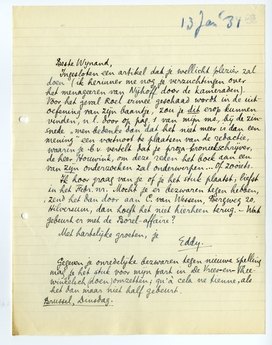 13 Jan '31
Beste Wynand,
Ingesloten een artikel dat je wellicht plezier zal
doen; ik herinner me nog je verzuchtingen over
het menageeren van Nijhoff door de kameraden).
Voor het geval Roel ermee geschaad wordt in de uit-
oefening van zijn baantje, zou je dit erop kunnen
vinden, n.l. door op pag. 1 van mijn ms, bij de zin-
snede „men bedenke dan dat het niet meer is dan een
mening" een voetnoot te plaatsen van de redactie,
waarin je b.v. vertelt dat je proza-kroniekschrijver,
de heer Houwink, om deze reden het boek aan een
van zijn onderzoeken zal onderwerpen. Of zooiets.
Ik hoor graag van je of je het stuk plaatst, liefst
in het Febr. nr. Mocht je er bezwaren tegen hebben,
zend het dan door aan C. van Wessem, Bergweg 20,
Hilversum, dan hoeft het niet hierheen terug. — Wat
gebeurt er met de Borel-affaire?
Met hartelijke groeten, je
Eddy.
Gegeven je onredelijke bezwaren tegen nieuwe spelling
mag je het stuk voor mijn part in de Vries en te
Winkelsch doen omzetten; qu'à cela ne tienne, als
het dan maar niet half gebeurt.
Brussel, Dinsdag.